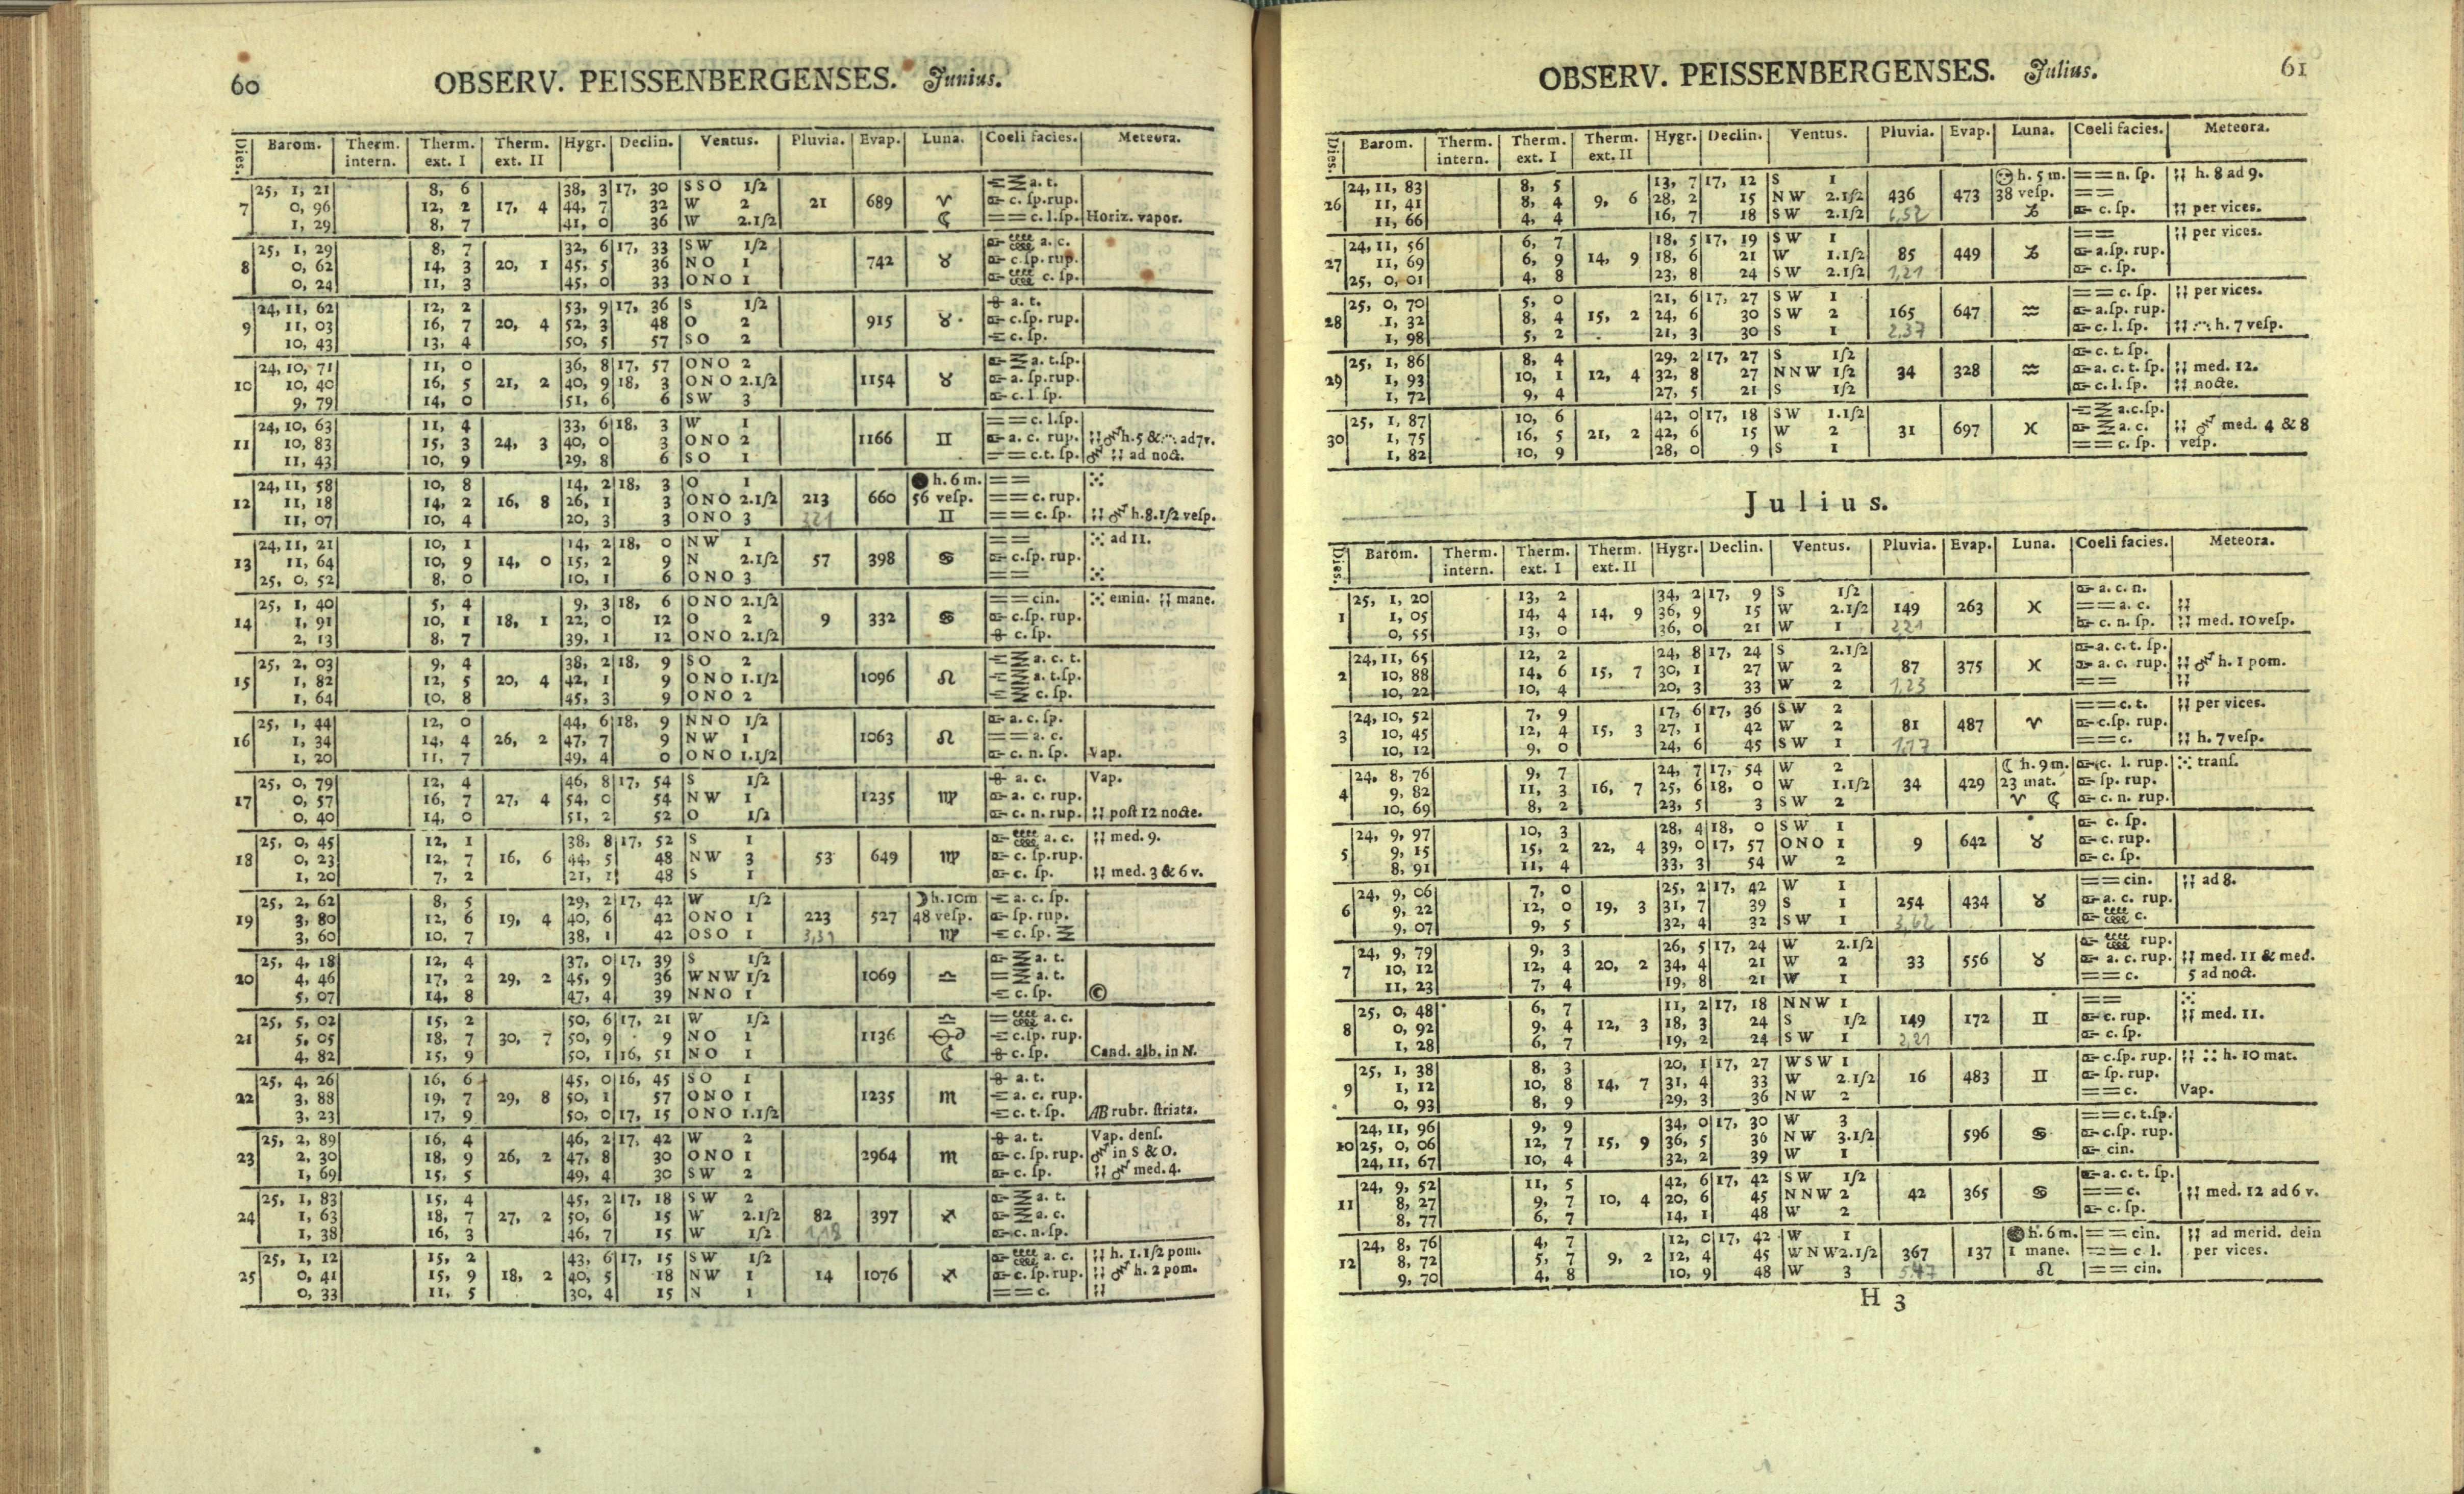 60 OBSERV. PEISSENBERGENSES. Junius.
Dies. Barom. Therm. intern. Therm. ext. I Therm. ext. II Hygr. Declin. Ventus. Pluvia. Evap. Luna. Coeli facies. Meteora.
25, 1, 21 8, 6 38, 3 17, 30 SSO 1/2 a. t.
7 0, 96 12, 2 17, 4 44, 7 32 W 2 21 689 ♈ c. ſp. rup.
1, 29 8, 7 41, 0 36 W 2.1/2 ☾ == c. l. ſp. Horiz. vapor.
25, 1, 29 8, 7 32, 6 17, 33 SW 1/2 a. c.
8 0, 62 14, 3 20, 1 45, 5 36 NO 1 742 ♉ c. ſp. rup.
0, 24 11, 3 45, 0 33 ONO 1 c. ſp.
24, 11, 62 12, 2 53, 9 17, 36 S 1/2 a. t.
9 11, 03 16, 7 20, 4 52, 3 48 O 2 915 ♉ c. ſp. rup.
10, 43 13, 4 50, 5 57 SO 2 c. ſp.
24, 10, 71 11, 0 36, 8 17, 57 ONO 2 a. t. ſp.
10 10, 40 16, 5 21, 2 40, 9 18, 3 ONO 2.1/2 1154 ♉ a. ſp. rup.
9, 79 14, 0 51, 6 6 SW 3 c. l. ſp.
24, 10, 63 11, 4 33, 6 18, 3 W 1 == c. l. ſp.
11 10, 83 15, 3 24, 3 40, 0 3 ONO 2 1166 ♊ a. c. rup. h. 5 & ad 7 v.
11, 43 10, 9 29, 8 6 SO 1 == c. t. ſp. ad noct.
24, 11, 58 10, 8 14, 2 18, 3 O 1 ● h. 6 m. ==
12 11, 18 14, 2 16, 8 26, 1 3 ONO 2.1/2 213 660 56 veſp. == c. rup.
11, 07 10, 4 20, 3 3 ONO 3 ♊ == c. ſp. h. 8. 1/2 veſp.
24, 11, 21 10, 1 14, 2 18, 0 NW 1 == ad 11.
13 11, 64 10, 9 14, 0 15, 2 9 N 2.1/2 57 398 ♋ c. ſp. rup.
25, 0, 52 8, 0 10, 1 6 ONO 3 ==
25, 1, 40 5, 4 9, 3 18, 6 ONO 2.1/2 == cin. emin. mane.
14 1, 91 10, 1 18, 1 22, 0 12 O 2 9 332 ♋ c. ſp. rup.
2, 13 8, 7 39, 1 12 ONO 2.1/2 c. ſp.
25, 2, 03 9, 4 38, 2 18, 9 SO 2 a. c. t.
15 1, 82 12, 5 20, 4 42, 1 9 ONO 1.1/2 1096 ♌ a. t. ſp.
1, 64 10, 8 45, 3 9 ONO 2 c. ſp.
25, 1, 44 12, 0 44, 6 18, 9 NNO 1/2 a. c. ſp.
16 1, 34 14, 4 26, 2 47, 7 9 NW 1 1063 ♌ == a. c.
1, 20 11, 7 49, 4 0 ONO 1.1/2 c. n. ſp. Vap.
25, 0, 79 12, 4 46, 8 17, 54 S 1/2 a. c. Vap.
17 0, 57 16, 7 27, 4 54, 0 54 NW 1 1235 ♍ a. c. rup.
0, 40 14, 0 51, 2 52 O 1/2 c. n. rup. poſt 12 nocte.
25, 0, 45 12, 1 38, 8 17, 52 S 1 a. c. med. 9.
18 0, 23 12, 7 16, 6 44, 5 48 NW 3 53 649 ♍ c. ſp. rup.
1, 20 7, 2 21, 1 48 S 1 c. ſp. med. 3 & 6 v.
25, 2, 62 8, 5 29, 2 17, 42 W 1/2 ☽ h. 10m a. c. ſp.
19 3, 80 12, 6 19, 4 40, 6 42 ONO 1 223 527 48 veſp. ſp. rup.
3, 60 10, 7 38, 1 42 OSO 1 3,31 ♍ c. ſp.
25, 4, 18 12, 4 37, 0 17, 39 S 1/2 a. t.
20 4, 46 17, 2 29, 2 45, 9 36 WNW 1/2 1069 ♎ a. t.
5, 07 14, 8 47, 4 39 NNO 1 c. ſp. ©
25, 5, 02 15, 2 50, 6 17, 21 W 1/2 ♎ a. c.
21 5, 05 18, 7 30, 7 50, 9 9 NO 1 1136 c. ſp. rup.
4, 82 15, 9 50, 1 16, 51 NO 1 ☾ c. ſp. Cand. alb. in N.
25, 4, 26 16, 6 45, 0 16, 45 SO 1 a. t.
22 3, 88 19, 7 29, 8 50, 1 57 ONO 1 1235 ♏ a. c. rup.
3, 23 17, 9 50, 0 17, 15 ONO 1.1/2 c. t. ſp. AB rubr. ſtriata.
25, 2, 89 16, 4 46, 2 17, 42 W 2 a. t. Vap. denſ.
23 2, 30 18, 9 26, 2 47, 8 30 ONO 1 2964 ♏ c. ſp. rup. in S & O.
1, 69 15, 5 49, 4 30 SW 2 c. ſp. med. 4.
25, 1, 83 15, 4 45, 2 17, 18 SW 2 a. t.
24 1, 63 18, 7 27, 2 50, 6 15 W 2.1/2 82 397 ♐ a. c.
1, 38 16, 3 46, 7 15 W 1/2 c. n. ſp.
25, 1, 12 15, 2 43, 6 17, 15 SW 1/2 a. c. h. 1. 1/2 pom.
25 0, 41 15, 9 18, 2 40, 5 18 NW 1 14 1076 ♐ c. ſp. rup. h. 2 pom.
0, 33 11, 5 30, 4 15 N 1 == c.
OBSERV. PEISSENBERGENSES. Julius. 61
Dies. Barom. Therm. intern. Therm. ext. I Therm. ext. II Hygr. Declin. Ventus. Pluvia. Evap. Luna. Coeli facies. Meteora.
24, 11, 83 8, 5 13, 7 17, 12 S 1 h. 5 m. == n. ſp. h. 8 ad 9.
26 11, 41 8, 4 9, 6 28, 2 15 NW 2.1/2 436 473 38 veſp. ==
11, 66 4, 4 16, 7 18 SW 2.1/2 6,52 ♑ c. ſp. per vices.
24, 11, 56 6, 7 18, 5 17, 19 SW 1 == per vices.
27 11, 69 6, 9 14, 9 18, 6 21 W 1.1/2 85 449 ♑ a. ſp. rup.
25, 0, 01 4, 8 23, 8 24 SW 2.1/2 1,21 c. ſp.
25, 0, 70 5, 0 21, 6 17, 27 SW 1 == c. ſp. per vices.
28 1, 32 8, 4 15, 2 24, 6 30 SW 2 165 647 ♒ a. ſp. rup.
1, 98 5, 2 21, 3 30 S 1 2,37 c. l. ſp. h. 7 veſp.
25, 1, 86 8, 4 29, 2 17, 27 S 1/2 c. t. ſp.
29 1, 93 10, 1 12, 4 32, 8 27 NNW 1/2 34 328 ♒ a. c. t. ſp. med. 12.
1, 72 9, 4 27, 5 21 S 1/2 c. l. ſp. nocte.
25, 1, 87 10, 6 42, 0 17, 18 SW 1.1/2 a. c. ſp.
30 1, 75 16, 5 21, 2 42, 6 15 W 2 31 697 ♓ a. c. med. 4 & 8
1, 82 10, 9 28, 0 9 S 1 == c. ſp. veſp.
Julius.
Dies. Barom. Therm. intern. Therm. ext. I Therm. ext. II Hygr. Declin. Ventus. Pluvia. Evap. Luna. Coeli facies. Meteora.
25, 1, 20 13, 2 34, 2 17, 9 S 1/2 a. c. n.
1 1, 05 14, 4 14, 9 36, 9 15 W 2.1/2 149 263 ♓ == a. c.
0, 55 13, 0 36, 0 21 W 1 2,21 c. n. ſp. med. 10 veſp.
24, 11, 65 12, 2 24, 8 17, 24 S 2.1/2 a. c. t. ſp.
2 10, 88 14, 6 15, 7 30, 1 27 W 2 87 375 ♓ a. c. rup. h. 1 pom.
10, 22 10, 4 20, 3 33 W 2 1,23 ==
24, 10, 52 7, 9 17, 6 17, 36 SW 2 == c. t. per vices.
3 10, 45 12, 4 15, 3 27, 1 42 W 2 81 487 ♈ c. ſp. rup.
10, 12 9, 0 24, 6 45 SW 1 1,17 == c. h. 7 veſp.
24, 8, 76 9, 7 24, 7 17, 54 W 2 ☾ h. 9 m. c. l. rup. tranſ.
4 9, 82 11, 3 16, 7 25, 6 18, 0 W 1.1/2 34 429 23 mat. ſp. rup.
10, 69 8, 2 23, 5 3 SW 2 ♈ ☾ c. n. rup.
24, 9, 97 10, 3 28, 4 18, 0 SW 1 c. ſp.
5 9, 15 15, 2 22, 4 39, 0 17, 57 ONO 1 9 642 ♉ c. rup.
8, 91 11, 4 33, 3 54 W 2 c. ſp.
24, 9, 06 7, 0 25, 2 17, 42 W 1 == cin. ad 8.
6 9, 22 12, 0 19, 3 31, 7 39 S 1 254 434 ♉ a. c. rup.
9, 07 9, 5 32, 4 32 SW 1 3,62 c.
24, 9, 79 9, 3 26, 5 17, 24 W 2.1/2 rup.
7 10, 12 12, 4 20, 2 34, 4 21 W 2 33 556 ♉ a. c. rup. med. 11 & med.
11, 23 7, 4 19, 8 21 W 1 == c. 5 ad noct.
25, 0, 48 6, 7 11, 2 17, 18 NNW 1 ==
8 0, 92 9, 4 12, 3 18, 3 24 S 1/2 149 172 ♊ c. rup. med. 11.
1, 28 6, 7 19, 2 24 SW 1 2,21 c. ſp.
25, 1, 38 8, 3 20, 1 17, 27 WSW 1 c. ſp. rup. h. 10 mat.
9 1, 12 10, 8 14, 7 31, 4 33 W 2.1/2 16 483 ♊ ſp. rup.
0, 93 8, 9 29, 3 36 NW 2 == c. Vap.
24, 11, 96 9, 9 34, 0 17, 30 W 3 == c. t. ſp.
10 25, 0, 06 12, 7 15, 9 36, 5 36 NW 3.1/2 596 ♋ c. ſp. rup.
24, 11, 67 10, 4 32, 2 39 W 1 cin.
24, 9, 52 11, 5 42, 6 17, 42 SW 1/2 a. c. t. ſp.
11 8, 27 9, 7 10, 4 20, 6 45 NNW 2 42 365 ♋ == c. med. 12 ad 6 v.
8, 77 6, 7 14, 1 48 W 2 c. ſp.
24, 8, 76 4, 7 12, 0 17, 42 W 1 ● h. 6 m. == cin. ad merid. dein
12 8, 72 5, 7 9, 2 12, 4 45 WNW 2.1/2 367 137 1 mane. == c l. per vices.
9, 70 4, 8 10, 9 48 W 3 5,47 ♌ == cin.
H 3